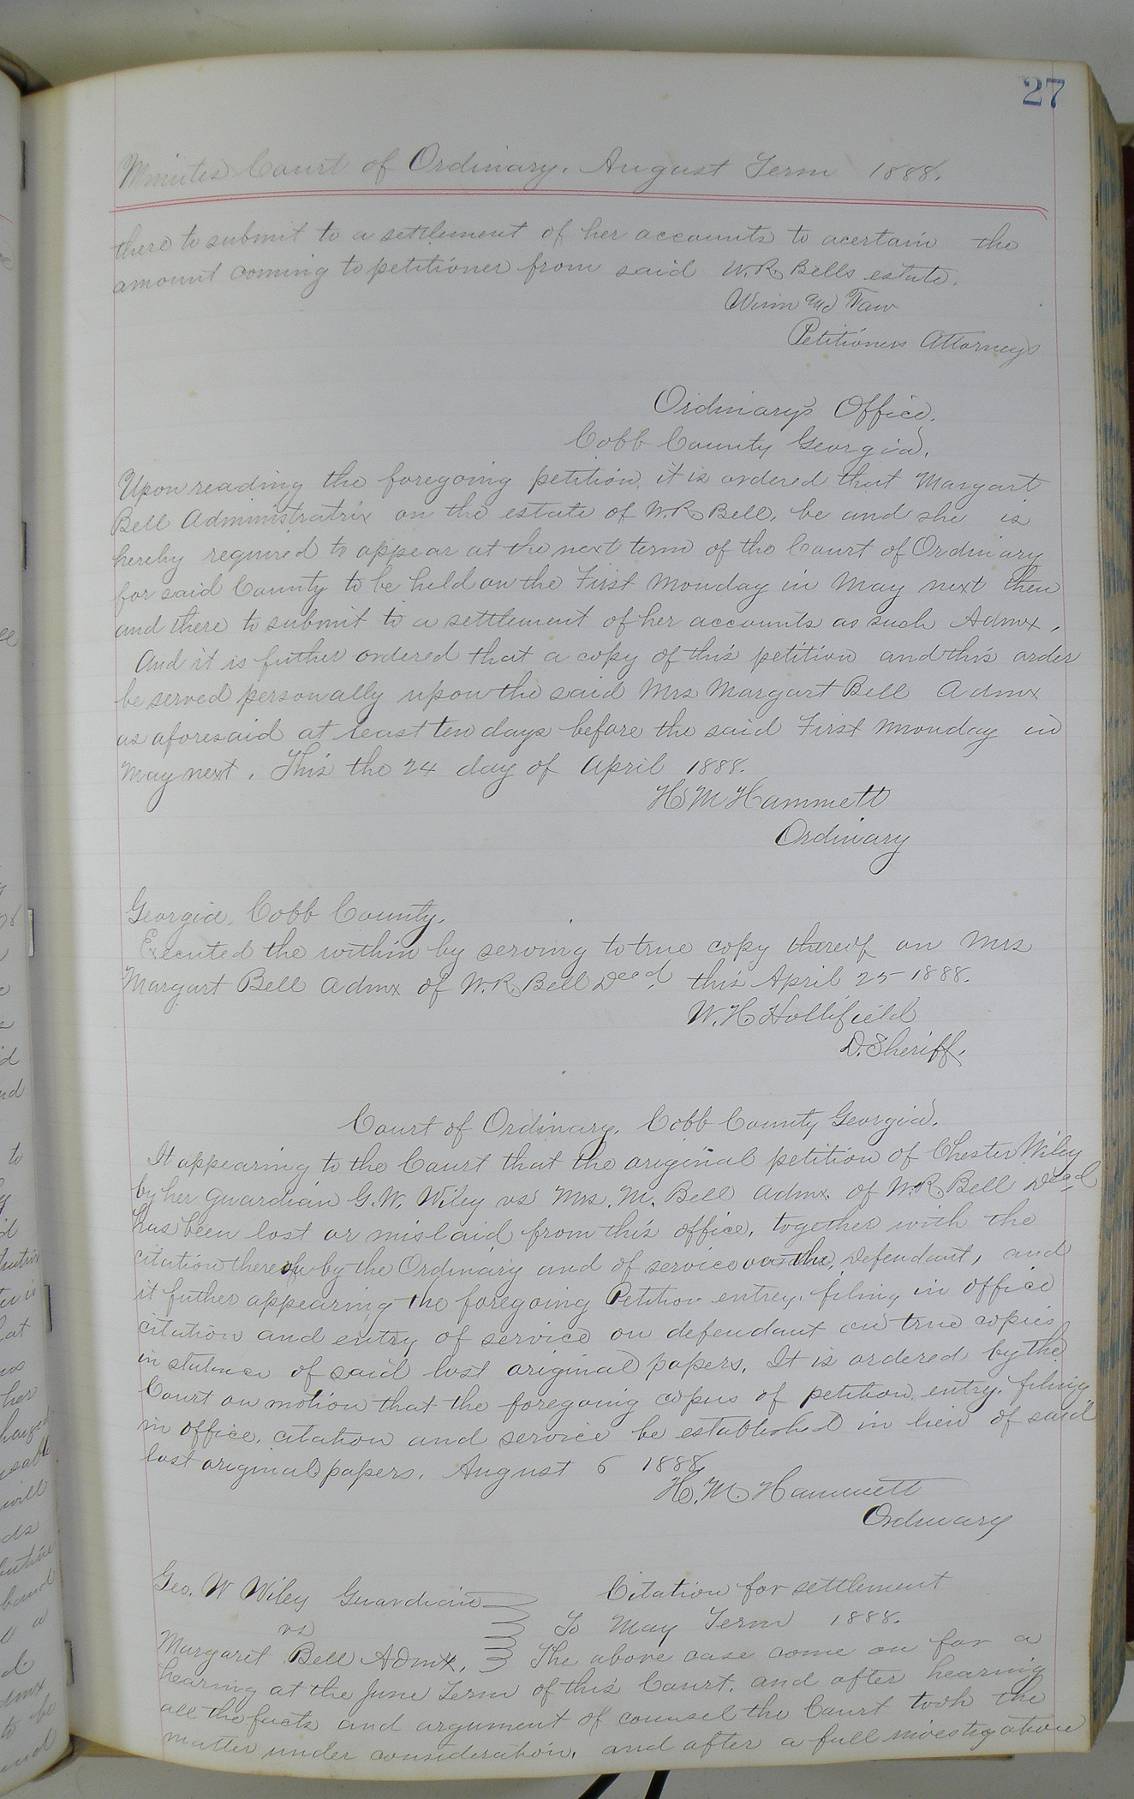 27
Minutes Court of Ordinary. August Term 1888.
there to submit to a settlement of her accounts to acertain the
amount coming to petitioner from said W.R. Bells estate.
Winn and Faw
Petitioners Attorneys
Ordinary's Office.
Cobb County Georgia.
Upon reading the foregoing petition, it is ordered that Margart
Bell Administratrix on the estate of W.R. Bell, be and she is
hereby required to appear at the next term of the Court of Ordinary
for said County to be held on the First Monday in May next then
and there to submit to a settlement of her accounts as such Admx.
And it is futher ordered that a copy of this petition and this order
be served personally upon the said Mrs Margart Bell Admx
as aforesaid at least ten days before the said First Monday in
May next. This the 24 day of April 1888.
H M Hammett
Ordinary
Georgia, Cobb County.
Executed the within by serving to true copy thereof on Mrs
Margart Bell Admx of W.R. Bell Decd. this April 25 1888.
W. H. Hollifield
D. Sheriff.
Court of Ordinary. Cobb County Georgia.
It appearing to the Court that the original petition of Chester Wiley
by her guardian G.W. Wiley vs Mrs. M. Bell Admx. of W.R Bell Decd
has been lost or mislaid from this office, together with the
citation thereof by the Ordinary and of service on the Defendant, and
it futher appearing the foregoing Petition entry, filing in office
citation and entry of service on defendant are true copies
in of said lost original papers. It is ordered by the
Court on motion that the foregoing copies of petition, entry, filing
in office, citation and service be established in lieu of said
lost original papers. August 6 1888
H. M. Hammett
Ordinary
Geo. W Wiley Guardian Citation for settlement
vs To May Term 1888.
Margarit Bell Admx. The above case come on for a
hearing at the June Term of this Court. and after hearing
all the facts and argument of counsel the Court took the
matter under consideration, and after a full investigation